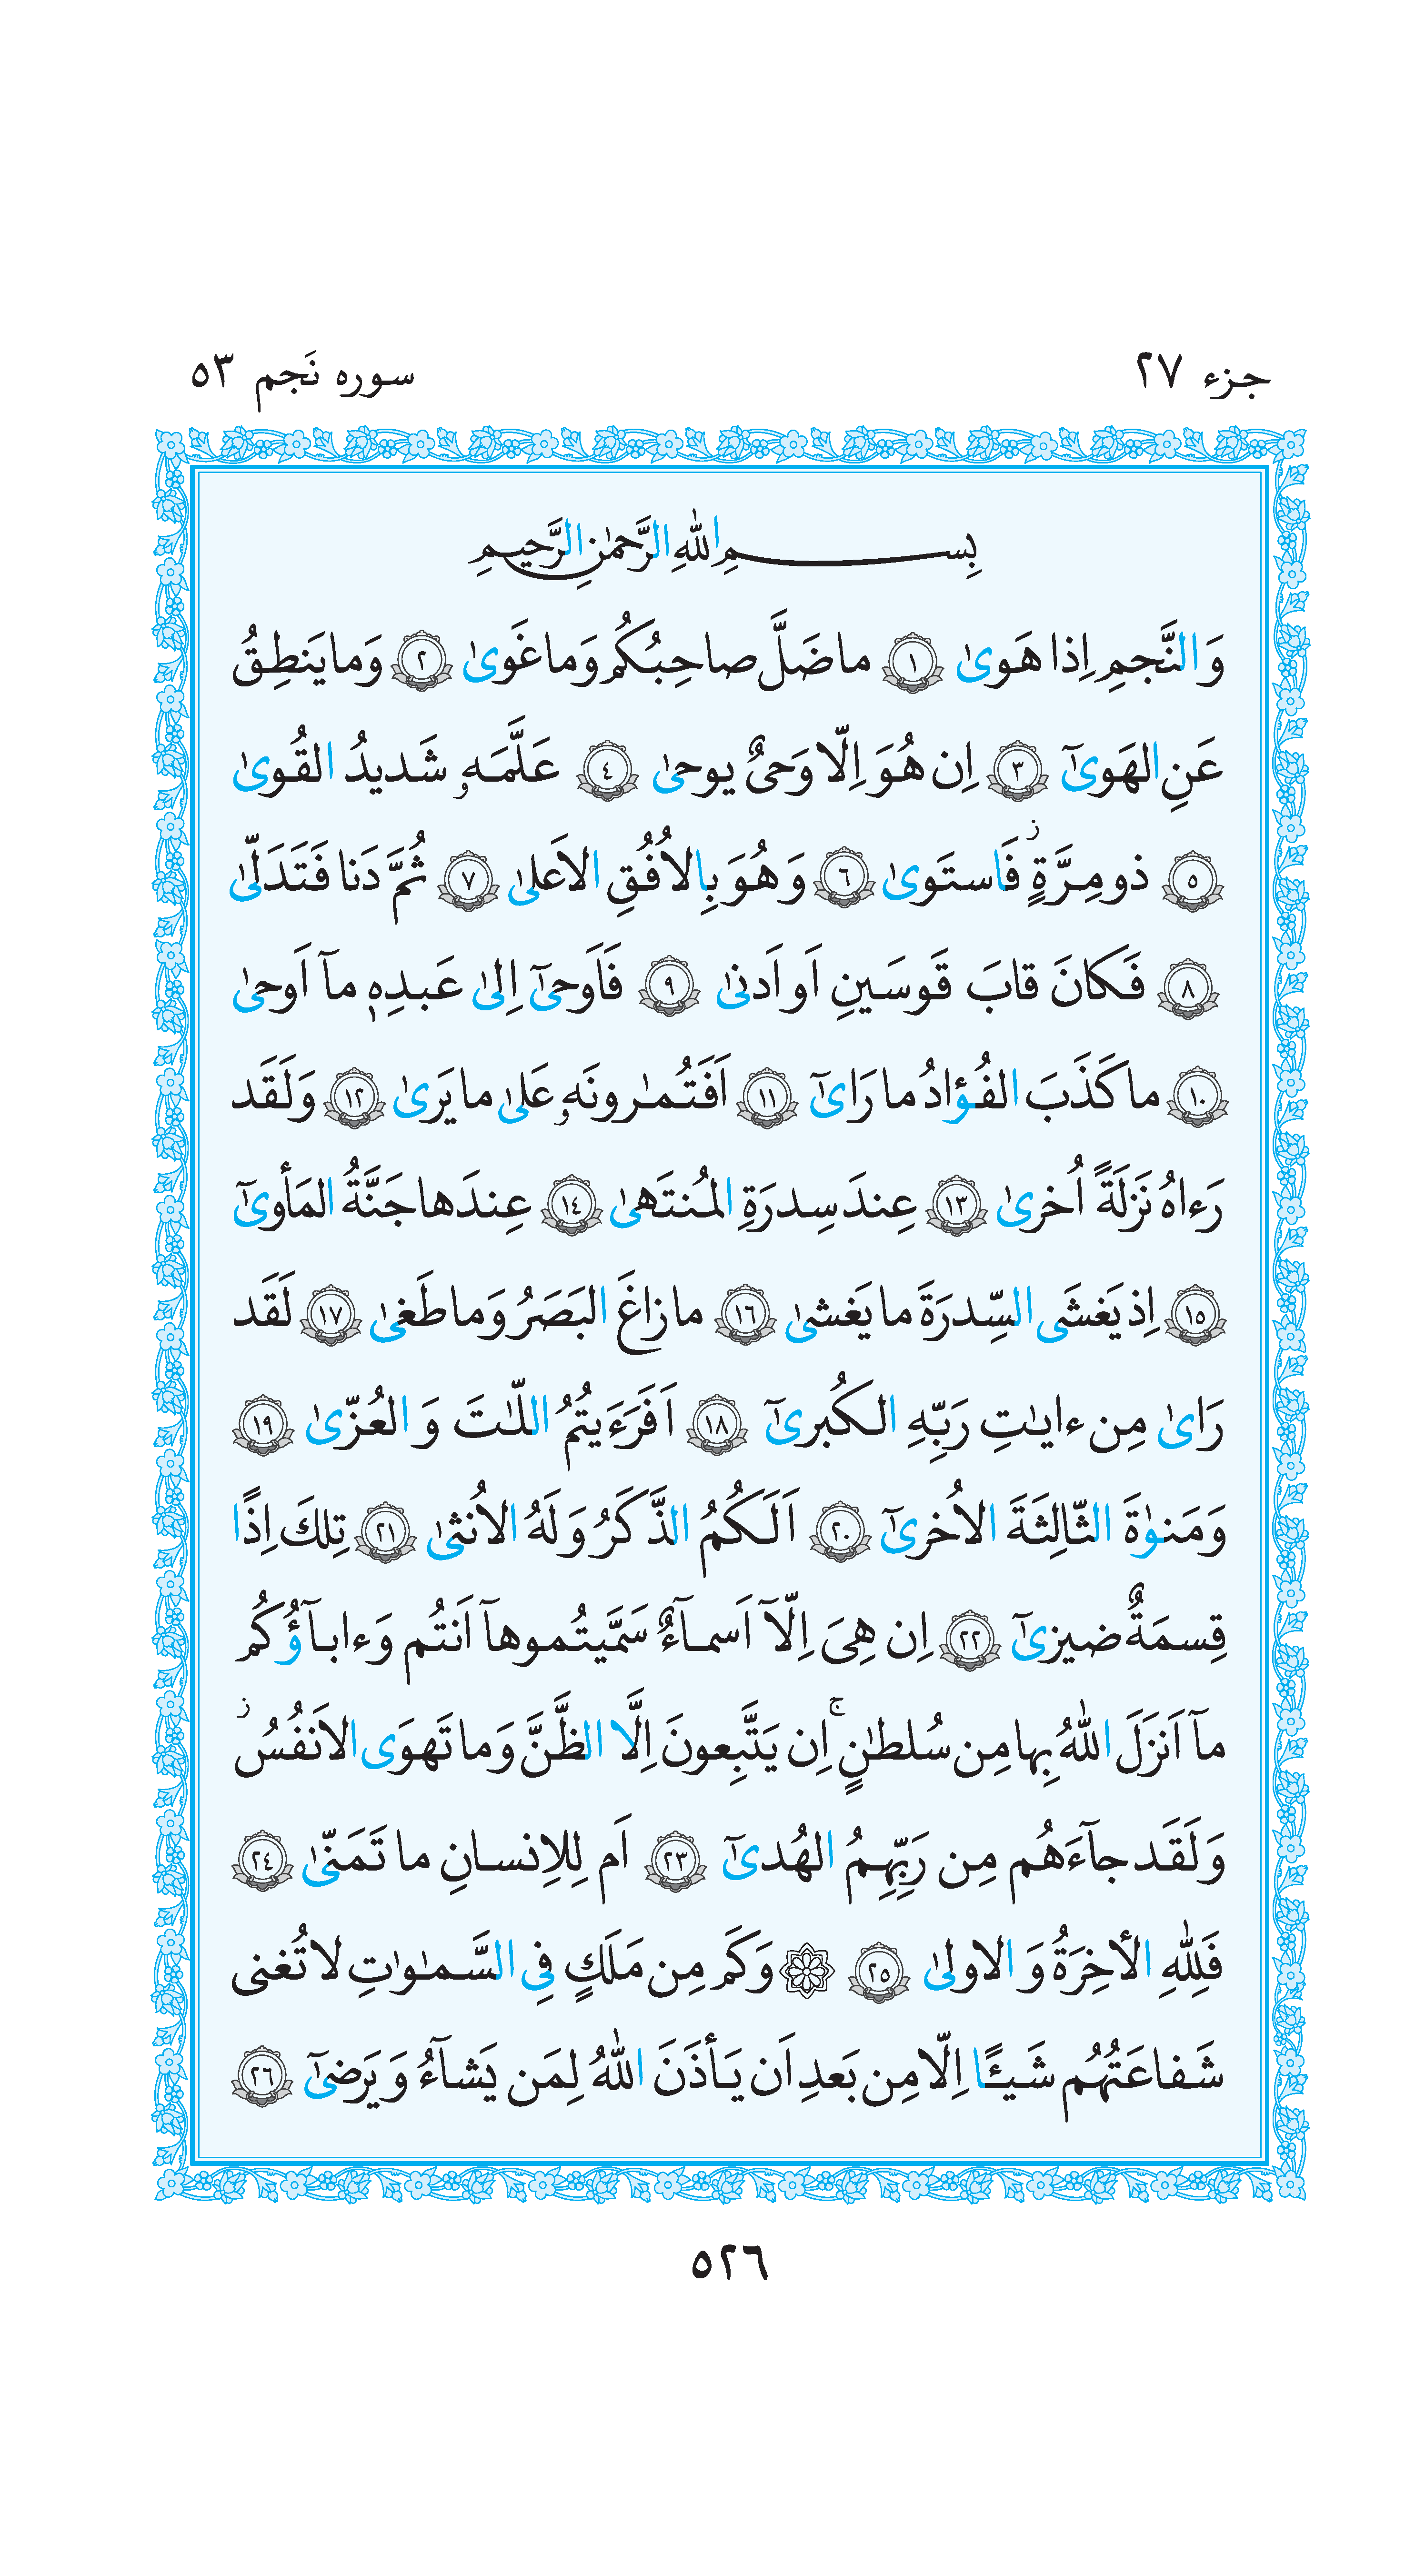 جزء ٢٧ سوره نَجم ٥٣
بِسمِ اللّٰهِ الرَّحمٰنِ الرَّحیمِ
وَ النَّجمِ اِذا هَوىٰ ١ ما ضَلَّ صاحِبُكُم وَما غَوىٰ ٢ وَما یَنطِقُ
عَنِ الهَوىٰٓ ٣ اِن هُوَ اِلّا وَحیٌ یوحىٰ ٤ عَلَّمَهٗ شَدیدُ القُوىٰ
٥ ذو مِرَّةٍۛ فَاستَوىٰ ٦ وَ هُوَ بِالاُفُقِ الاَعلىٰ ٧ ثُمَّ دَنا فَتَدَلّىٰ
٨ فَكانَ قابَ قَوسَینِ اَو اَدنىٰ ٩ فَاَوحىٰٓ اِلىٰ عَبدِهٖ مآ اَوحىٰ
١٠ ما كَذَبَ الفُؤادُ ما رَاىٰٓ ١١ اَفَتُمٰرونَهٗ عَلىٰ ما یَرىٰ ١٢ وَلَقَد
رَءاهُ نَزلَةً اُخرىٰ ١٣ عِندَ سِدرَةِ المُنتَهىٰ ١٤ عِندَها جَنَّةُ المَأوىٰٓ
١٥ اِذ یَغشَى السِّدرَةَ ما یَغشىٰ ١٦ ما زاغَ البَصَرُ وَما طَغىٰ ١٧ لَقَد
رَاىٰ مِن ءایٰتِ رَبِّهِ الكُبرىٰٓ ١٨ اَفَرَءَیتُمُ اللّٰتَ وَ العُزّىٰ ١٩
وَمَنوٰةَ الثّالِثَةَ الاُخرىٰٓ ٢٠ اَلَكُمُ الذَّكَرُ وَ لَهُ الاُنثىٰ ٢١ تِلكَ اِذًا
قِسمَةٌ ضیزىٰٓ ٢٢ اِن هِیَ اِلّآ اَسمآءٌ سَمَّیتُموهآ اَنتُم وَ ءابآؤُكُم
مآ اَنزَلَ اللّٰهُ بِها مِن سُلطٰنٍۚ اِن یَتَّبِعونَ اِلَّا الظَّنَّ وَما تَهوَى الاَنفُسُ ز
وَ لَقَد جآءَهُم مِن رَبِّهِمُ الهُدىٰٓ ٢٣ اَم لِلاِنسانِ ما تَمَنّىٰ ٢٤
فَلِلّٰهِ الأخِرَةُ وَ الاولىٰ ٢٥ ۞ وَكَم مِن مَلَكٍ فِى السَّمٰوٰتِ لا تُغنی
شَفاعَتُهُم شَیـًٔا اِلّا مِن بَعدِ اَن یَأذَنَ اللّٰهُ لِمَن یَشآءُ وَ یَرضىٰٓ ٢٦
٥٢٦